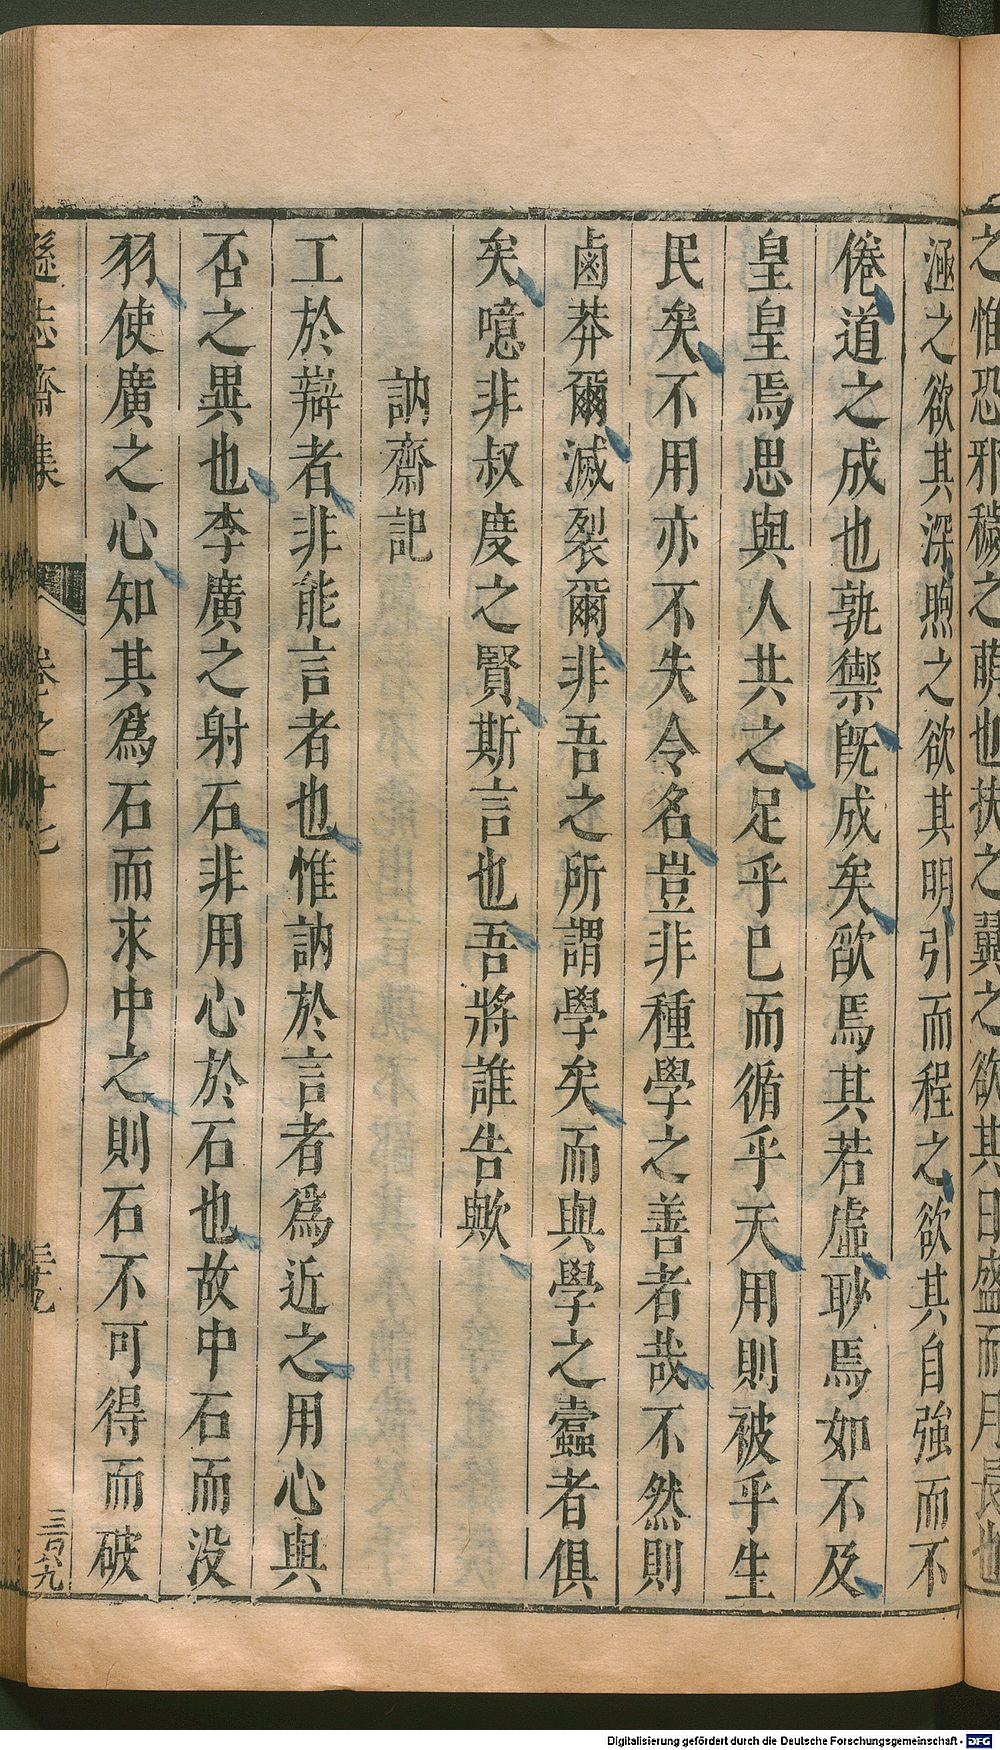 之惟恐邪穢之萌也扶之翼之欲其日盛而月長也
涵之欲其深煦之欲其明引而程之欲其自強而不
倦道之成也孰禦旣成矣欿焉其若虛眇焉如不及
皇皇焉思與人共之足乎已而循乎天用則被乎生
民矣不用亦不失令名豈非種學之善者哉不然則
鹵莽爾滅裂爾非吾之所謂學矣而與學之蠹者俱
矣噫非叔度之賢斯言也吾將誰告歟
訥齋記
工於辯者非能言者也惟訥於言者爲近之用心與
否之異也李廣之射石非用心於石也故中石而没
羽使廣之心知其爲石而求中之則石不可得而破
遜志齋集
卷之十七
三十九
三百八九
Digitalisierung gefördert durch die Deutsche Forschungsgemeinschaft - DFG